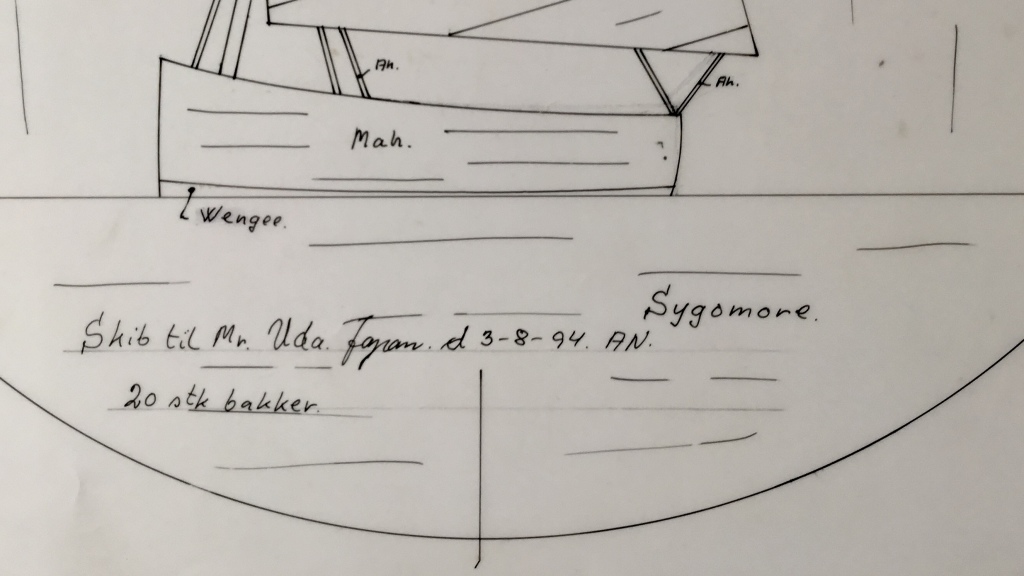 Ah.
Ah.
Mah.
Wengee.
Sygomore.
Skib til Mr. Uda. Japan. d 3-8-94. AN.
20 stk bakker.